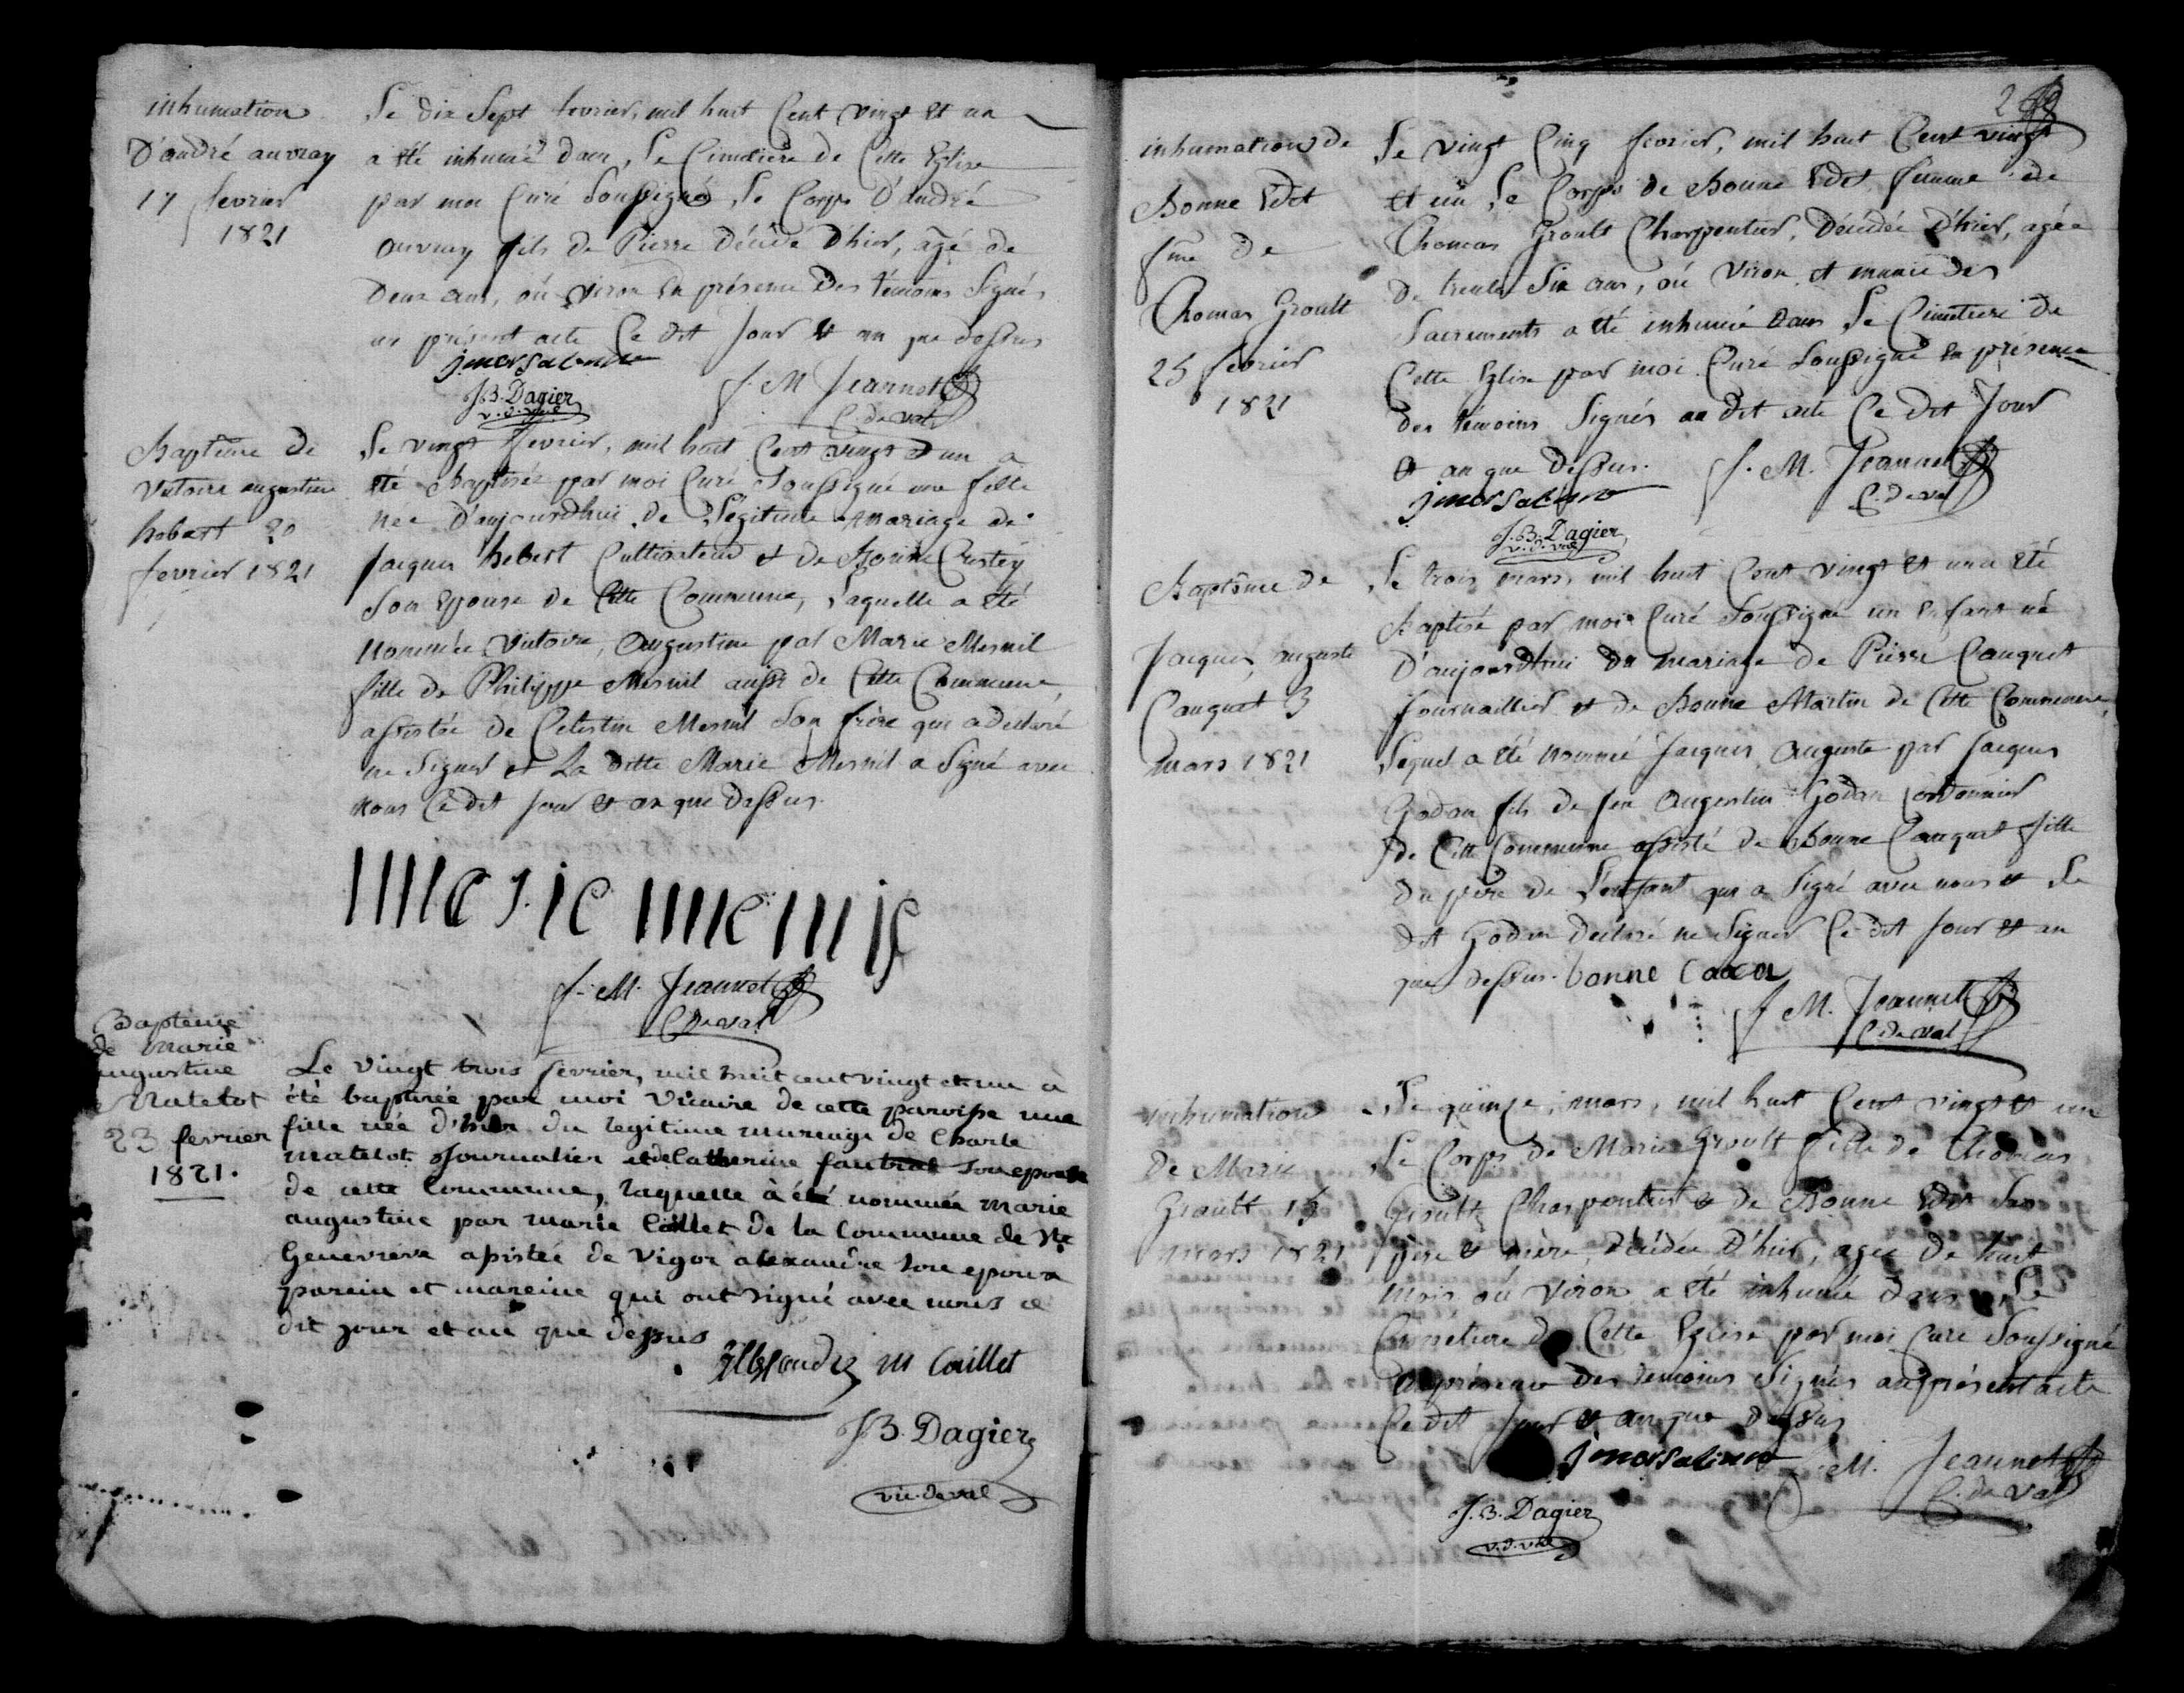 inhumation
D'andré auvray
17 fevrier
1821
Le dix Sept fevrier, mil huit Cent vingt et un
a été inhumé dans Le Cimetière de Cette Eglise
par moi Curé Soussigné Le Corps D'André
auvray fils de Pierre Décédé D'hier, agé de
Deux ans, où viron En présence Des témoins Signés
au présent acte Ce dit Jour et an que dessus
J. M. Jeannet
J.B. Dagier C. de val
v. d. val
Baptême de
Victoire augustine
hebert 20
fevrier 1821
Le vingt fevrier, mil huit Cent vingt et un a
été Baptisée par moi Curé Soussigné une fille
née D'aujourdhui de Légitime mariage de
Jacques hebert Cultivateur et de Bonne Crestey
Son Epouse de Cette Commune, Laquelle a été
nommée Victoire, Augustine par Marie Mesnil
fille de Philippe Mesnil aussi de Cette Commune,
assistée de Celestin Mesnil Son frère qui a declaré
ne Signer et La ditte Marie Mesnil a Signé avec
nous Ce dit Jour et an que Dessus.
J. M. Jeannet
C. de val
Bapteme
de Marie
augustine
Matelot
23 fevrier
1821.
Le vingt trois fevrier, mil huit cent vingt et un a
été baptisée par moi Vicaire de cette paroisse une
fille née d'hier du legitime mariage de Charle
matelot Journalier et de Catherine son epouse
de cette Commune, laquelle à été nommée marie
augustine par marie Caillet de la Commune de Ste
Geneviève assistée de Vigor alexandre son epoux
parein et mareine qui ont signé avec nous ce
dit jour et an que dessus
m Caillet
J.B. Dagier
vic. de val
2
inhumation de
Bonne Edet
fme de
Thomas Groult
25 fevrier
1821
Le vingt Cinq fevrier, mil huit Cent vingt
et un Le Corps de Bonne Edet femme de
Thomas Groult Charpentier, Décédée D'hier, agée
De trente Six ans, où viron, et munie Des
Sacrements a été inhumée Dans Le Cimetiere de
Cette Eglise par moi Curé Soussigné En présence
des témoins Signés au dit acte Ce dit Jour
et an que Dessus. J. M. Jeannet
C. de val
J.B. Dagier
v. d. val
Baptême de
Jacques auguste
Cauquet 3
mars 1821
Le trois mars, mil huit Cent vingt et un a été
Baptisé par moi Curé Soussigné un Enfant né
D'aujourdhui Du mariage de Pierre Cauquet
Journaillier et de Bonne Martin de Cette Commune,
Lequel a été nommé Jacques Auguste par Jacques
Godan fils de feu Augustin Godan Cordonnier
de Cette Commune assisté de Bonne Cauquet fille
du père de L'enfant qui a Signé avec nous et Le
dit Godan Declaré ne Signer Ce dit Jour et an
que dessus. bonne
J. M. Jeannet
C. de val
inhumation
De Marie
Groult 15
mars 1821
Le quinze, mars, mil huit Cent vingt et un
Le Corps de Marie Groult fille de Thomas
Groult Charpentier et de Bonne Edet Ses
père et mère, Décédée D'hier, agée de huit
mois où viron a été inhumé Dans Le
Cimetiere de Cette Eglise par moi Curé Soussigné
En présence Des témoins Signés au présent acte
Ce dit Jour et an que dessus
M. Jeannet
C. de val
J.B. Dagier
v. d. val